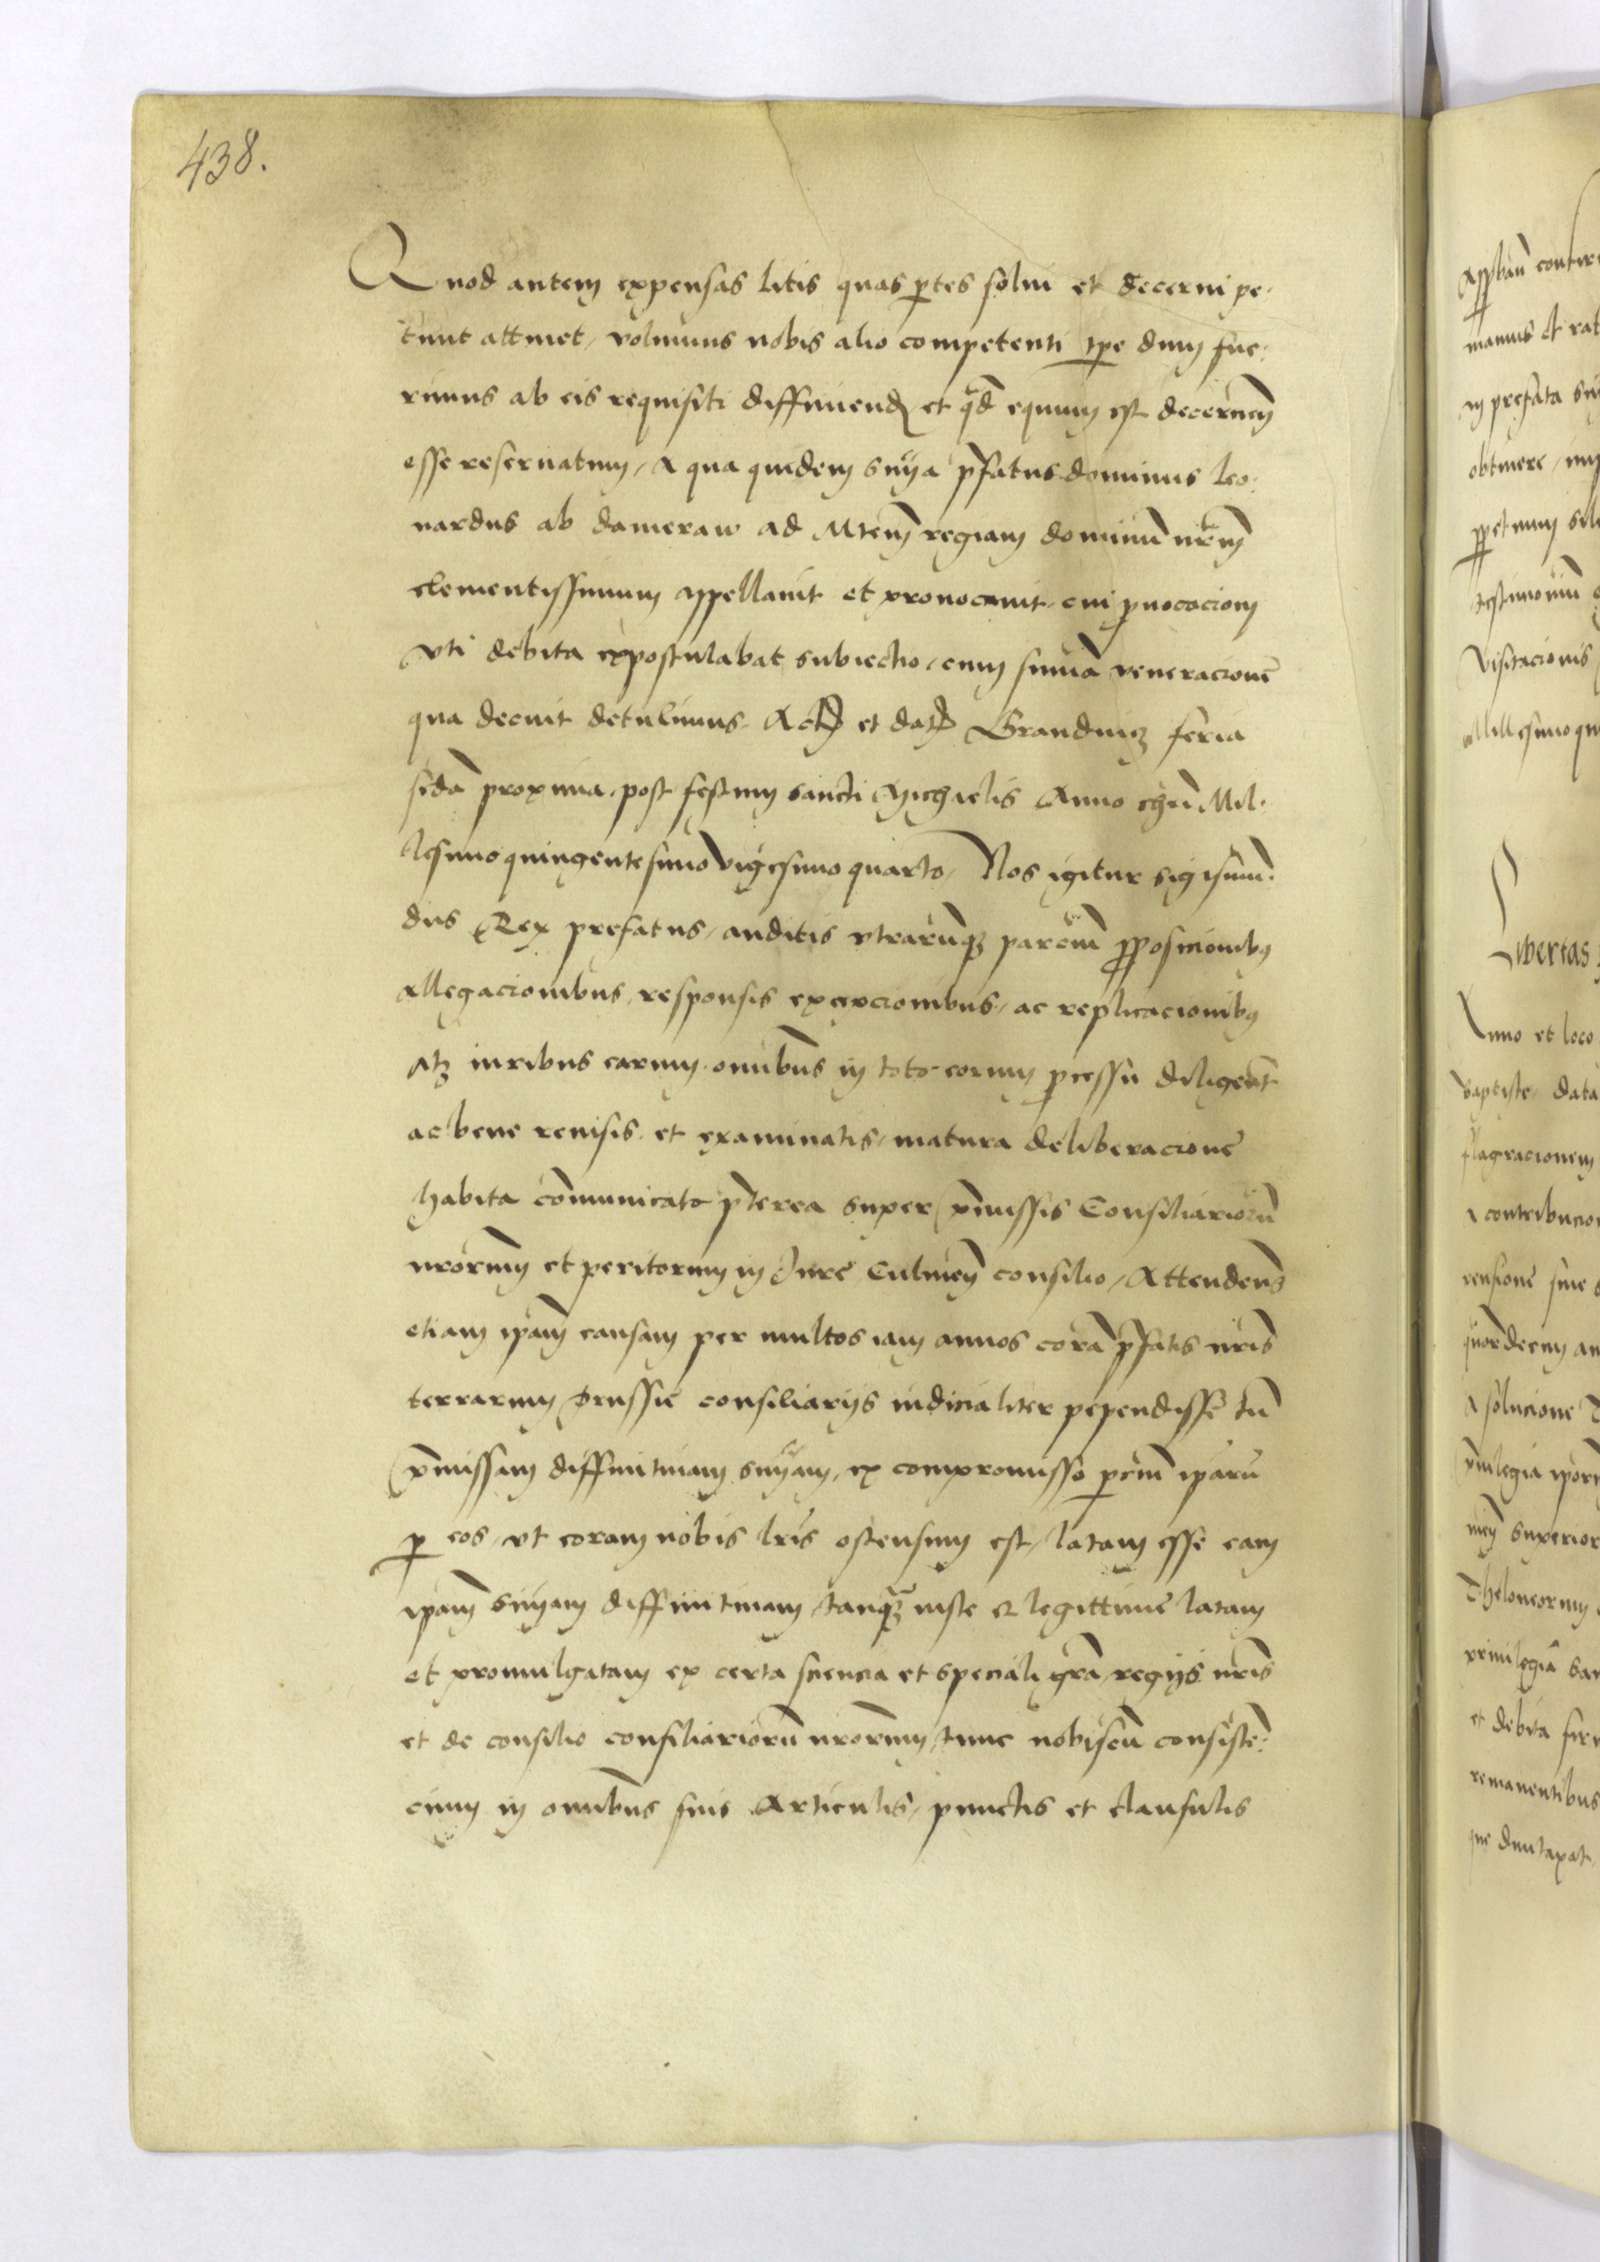 438.
Quod autem expensas litis quas p̲tes solui et decerni pe-
tunt attinet, volumus nobis alio competenti tp̄e dum fue-
rimus ab eis requisiti diffiniend̄ et qd̄ equum est decernen̄
esse reseruatum, A qua quidem sn̄ia p̄fatus dominus Leo-
nardus ab dameraw ad Mtem̄ regiam dominū nr̄m
clementissimum appellauit et prouocauit, cui p̱uocacioni
vti debita expostulabat subiectio, cum summa veneracione
qua decuit detulimus. Act̄ et dat̄ Graudnicz feria
scd̄a proxima, post festum sancti Michaelis Anno chrī Mil-
lesimo quingentesimo vigesimo quarto, Nos igitur Sigismū-
dus Rex prefatus, auditis vtrarūq3 parciū p̱posicionib9
allegacionibus, responsis excepcionibus, ac replicacionib9
Atq3 iuribus earum, omībus in toto eorum p̱cessu diligent̄
ac bene reuisis, et examinatis, matura deliberacione
habita com̄unicato p̄terea super p̄missis Consiliariorū
nrōrum et peritorum in Jure Culmen̄ consilio, Attendentes
etiam ip̄am causam per multos iam annos corā p̄fatis nr̄is
terrarum Prussie consiliarijs iudicialiter pependisse tū
p̄missam diffinitiuam sn̄iam, ex compromisso p̲ciū ip̄arū
p̲ eos, vt coram nobis lr̄is ostensum est, latam esse eam
ip̄am sn̄iam diffinitiuam, tanq̄3 iuste et legittime latam
et promulgatam ex certa sciencia et speciali gr̄a, regijs nr̄is
et de consilio consiliariorū nrōrum, tunc nobiscū consisten-
cium in omībus suis Articulis, punctis et clausulis
in prefata
manus et
obtinere
Visitacionis
Libertas
Anno et loco
baptiste, data
flagracionem
rensione siue
A solucione
Theloneorum
et debita
remanentibus